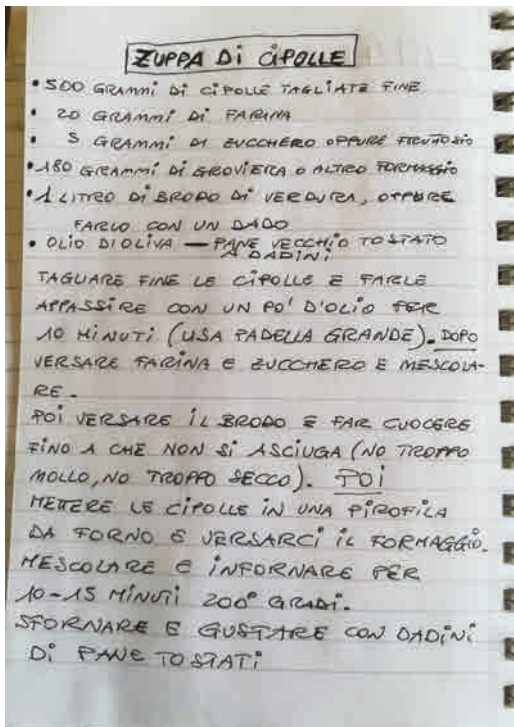 ZUPPA Di CiPOLLE
• 500 GRAMMi Di CiPOLLE TAGLiATE FiNE
• 20 GRAMMi Di FARiNA
5 GRAMMi Di ZUCCHERO OPPURE FRUTTOSiO
• 180 GRAMMi Di GROViERA O ALTRO FORMAGGiO
• 1 LiTRO Di BRODO Di VERDURA, OPPURE
FARLO CON UN DADO
• OLiO Di OLiVA — PANE VECCHiO TOSTATO
A DADiNi
TAGLiARE FiNE LE CiPOLLE E FARLE
APPASSiRE CON UN PO' D'OLiO PER
10 MiNUTi (USA PADELLA GRANDE). DOPO
VERSARE FARiNA E ZUCCHERO E MESCOLA-
RE.
POi VERSARE iL BRODO E FAR CUOCERE
FiNO A CHE NON Si ASCiUGA (NO TROPPO
MOLLO, NO TROPPO SECCO). POi
METTERE LE CiPOLLE iN UNA PiROFiLA
DA FORNO E VERSARCi iL FORMAGGiO.
MESCOLARE E iNFORNARE PER
10-15 MiNUTi 200° GRADi.
SFORNARE E GUSTARE CON DADiNi
Di PANE TOSTATi